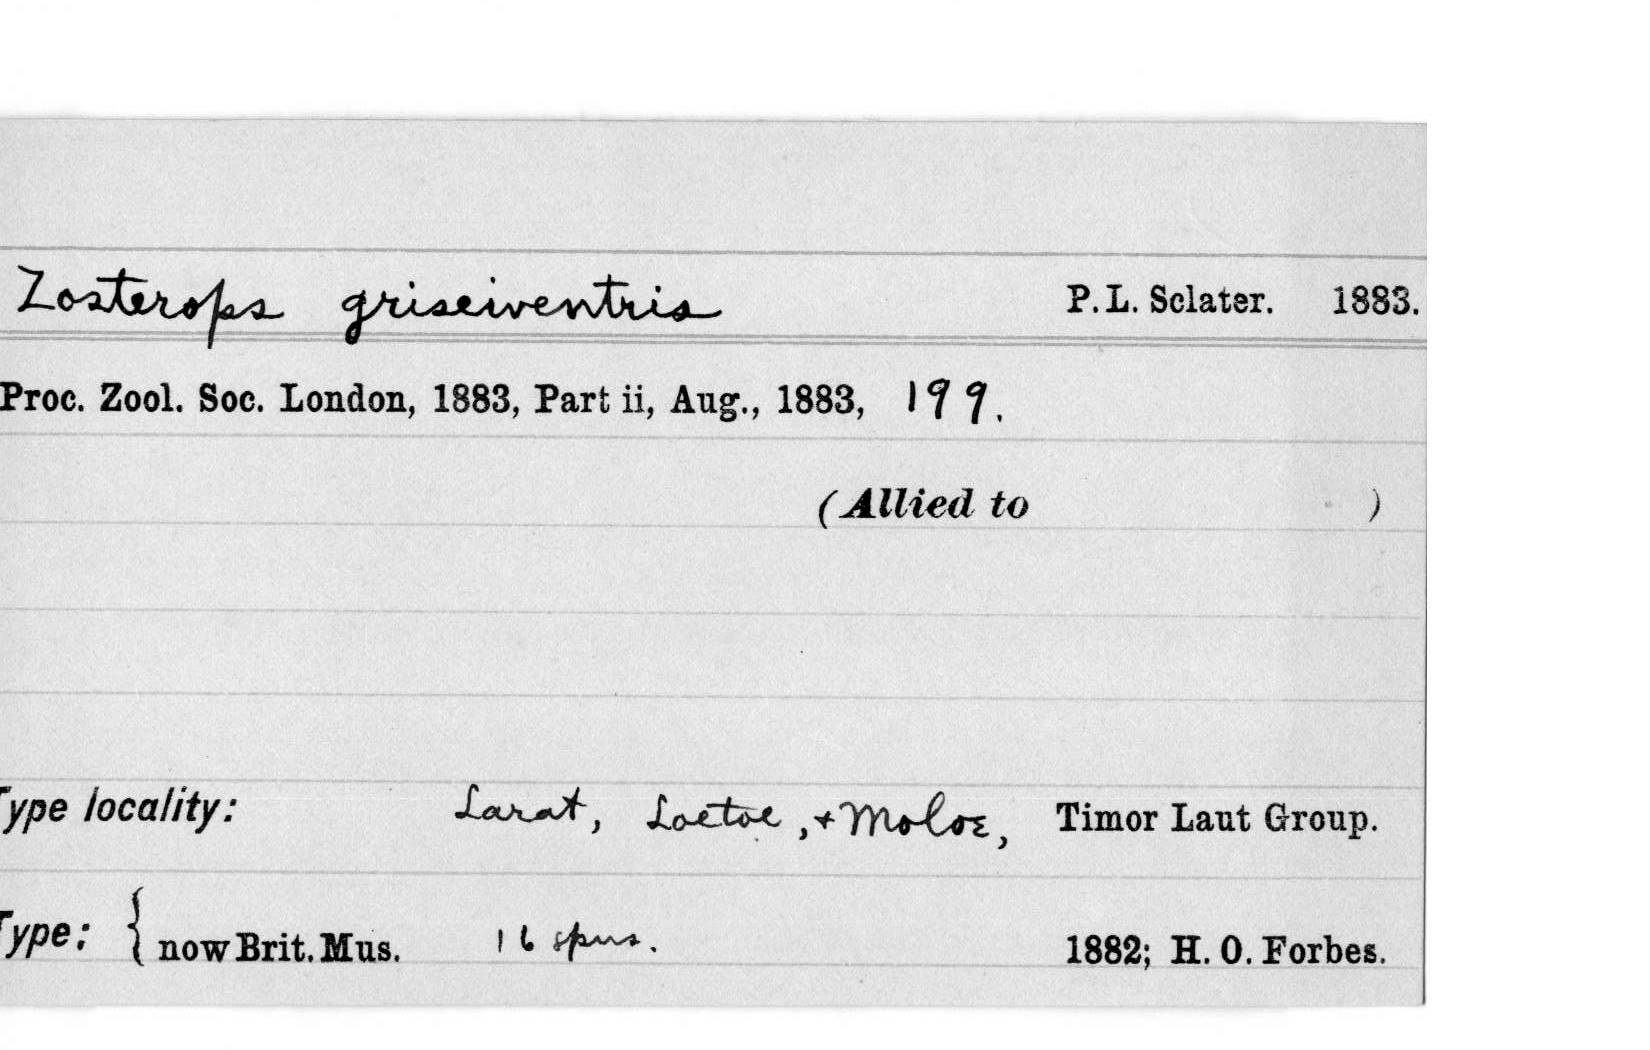 Zosterops griseiventris P. L. Sclater. 1883.
Proc. Zool. Soc. London, 1883, Part ii, Aug., 1883, 199.
(Allied to )
Type locality: Larat, Loetoe, + Moloe, Timor Laut Group.
Type: { now Brit. Mus. 16 spms. 1882; H. O. Forbes.